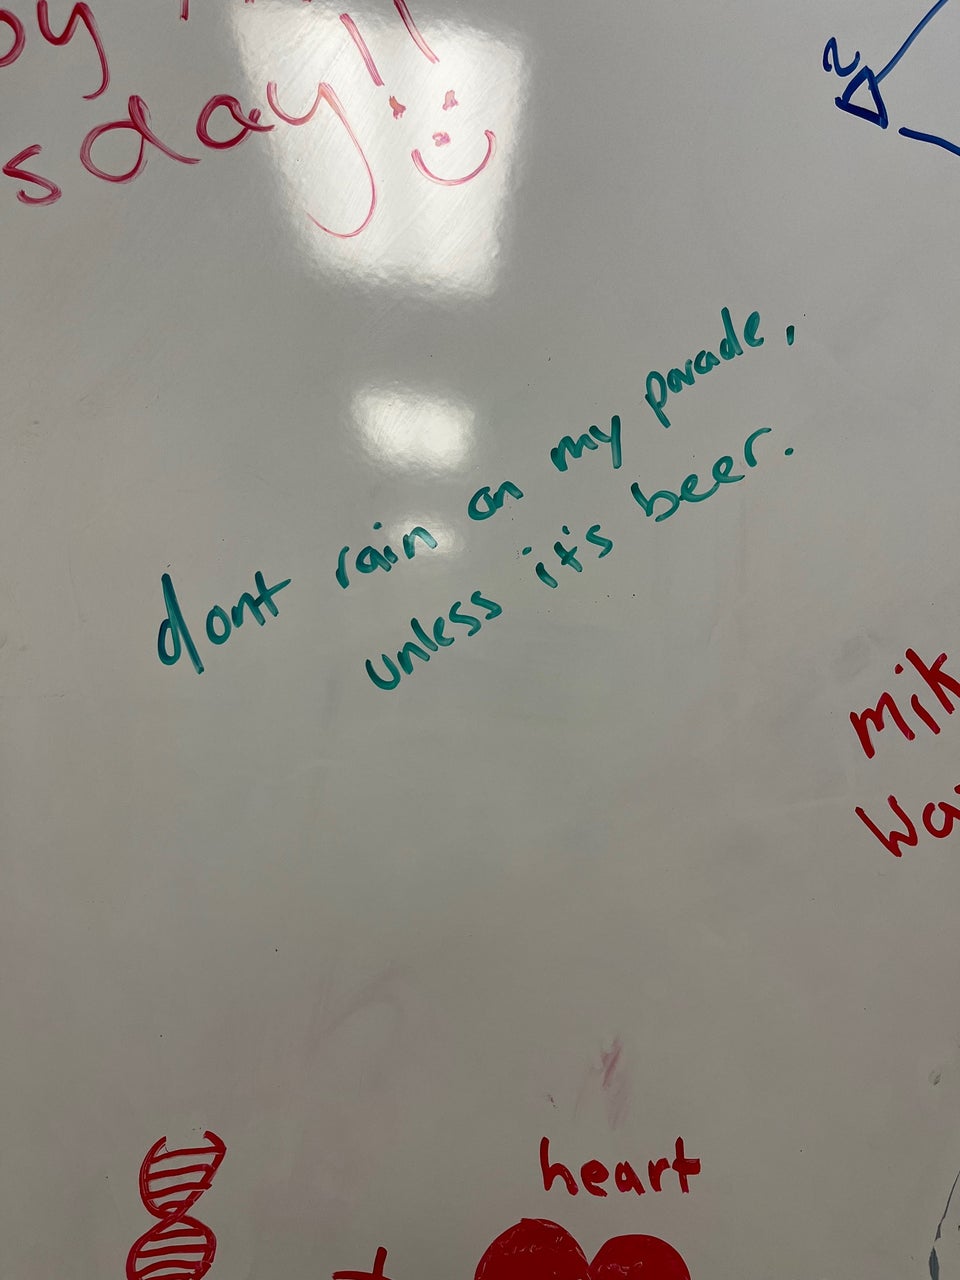 sday!!
2
dont rain on my parade,
unless it's beer.
heart
+